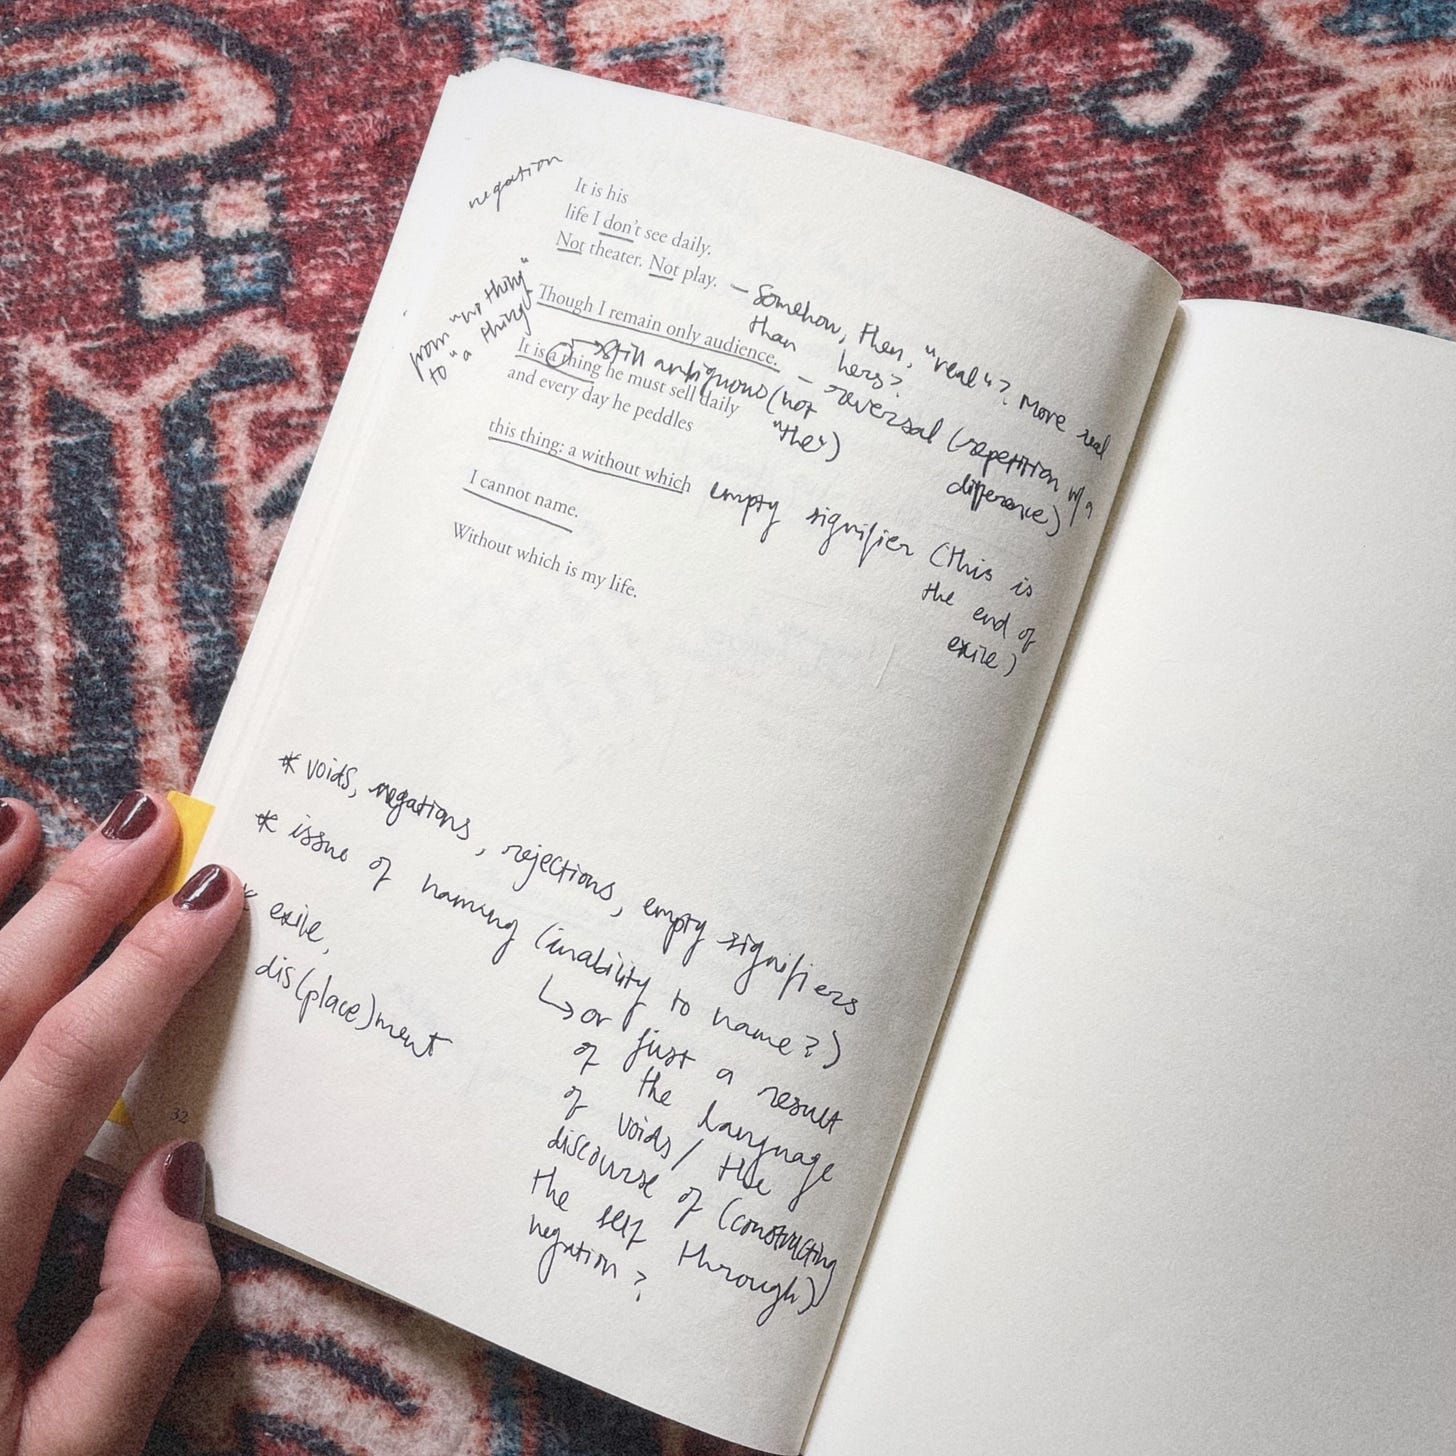 negation
It is his
life I don't see daily.
Not theater. Not play.
— Somehow, then, "real"? More real
than hers?
from "no thing"
to "a thing"
Though I remain only audience.
— reversal (repetition w/ a
difference)
It is a thing he must sell daily
→ still ambiguous (not
"the")
and every day he peddles
this thing: a without which
I cannot name.
empty signifier (this is
the end of
exile)
Without which is my life.
* voids, negations, rejections, empty signifiers
* issue of naming (inability to name?)
↳ or just a result
of the language
of voids / the
discourse of (constructing
the self through)
negation?
* exile,
dis(place)ment
32